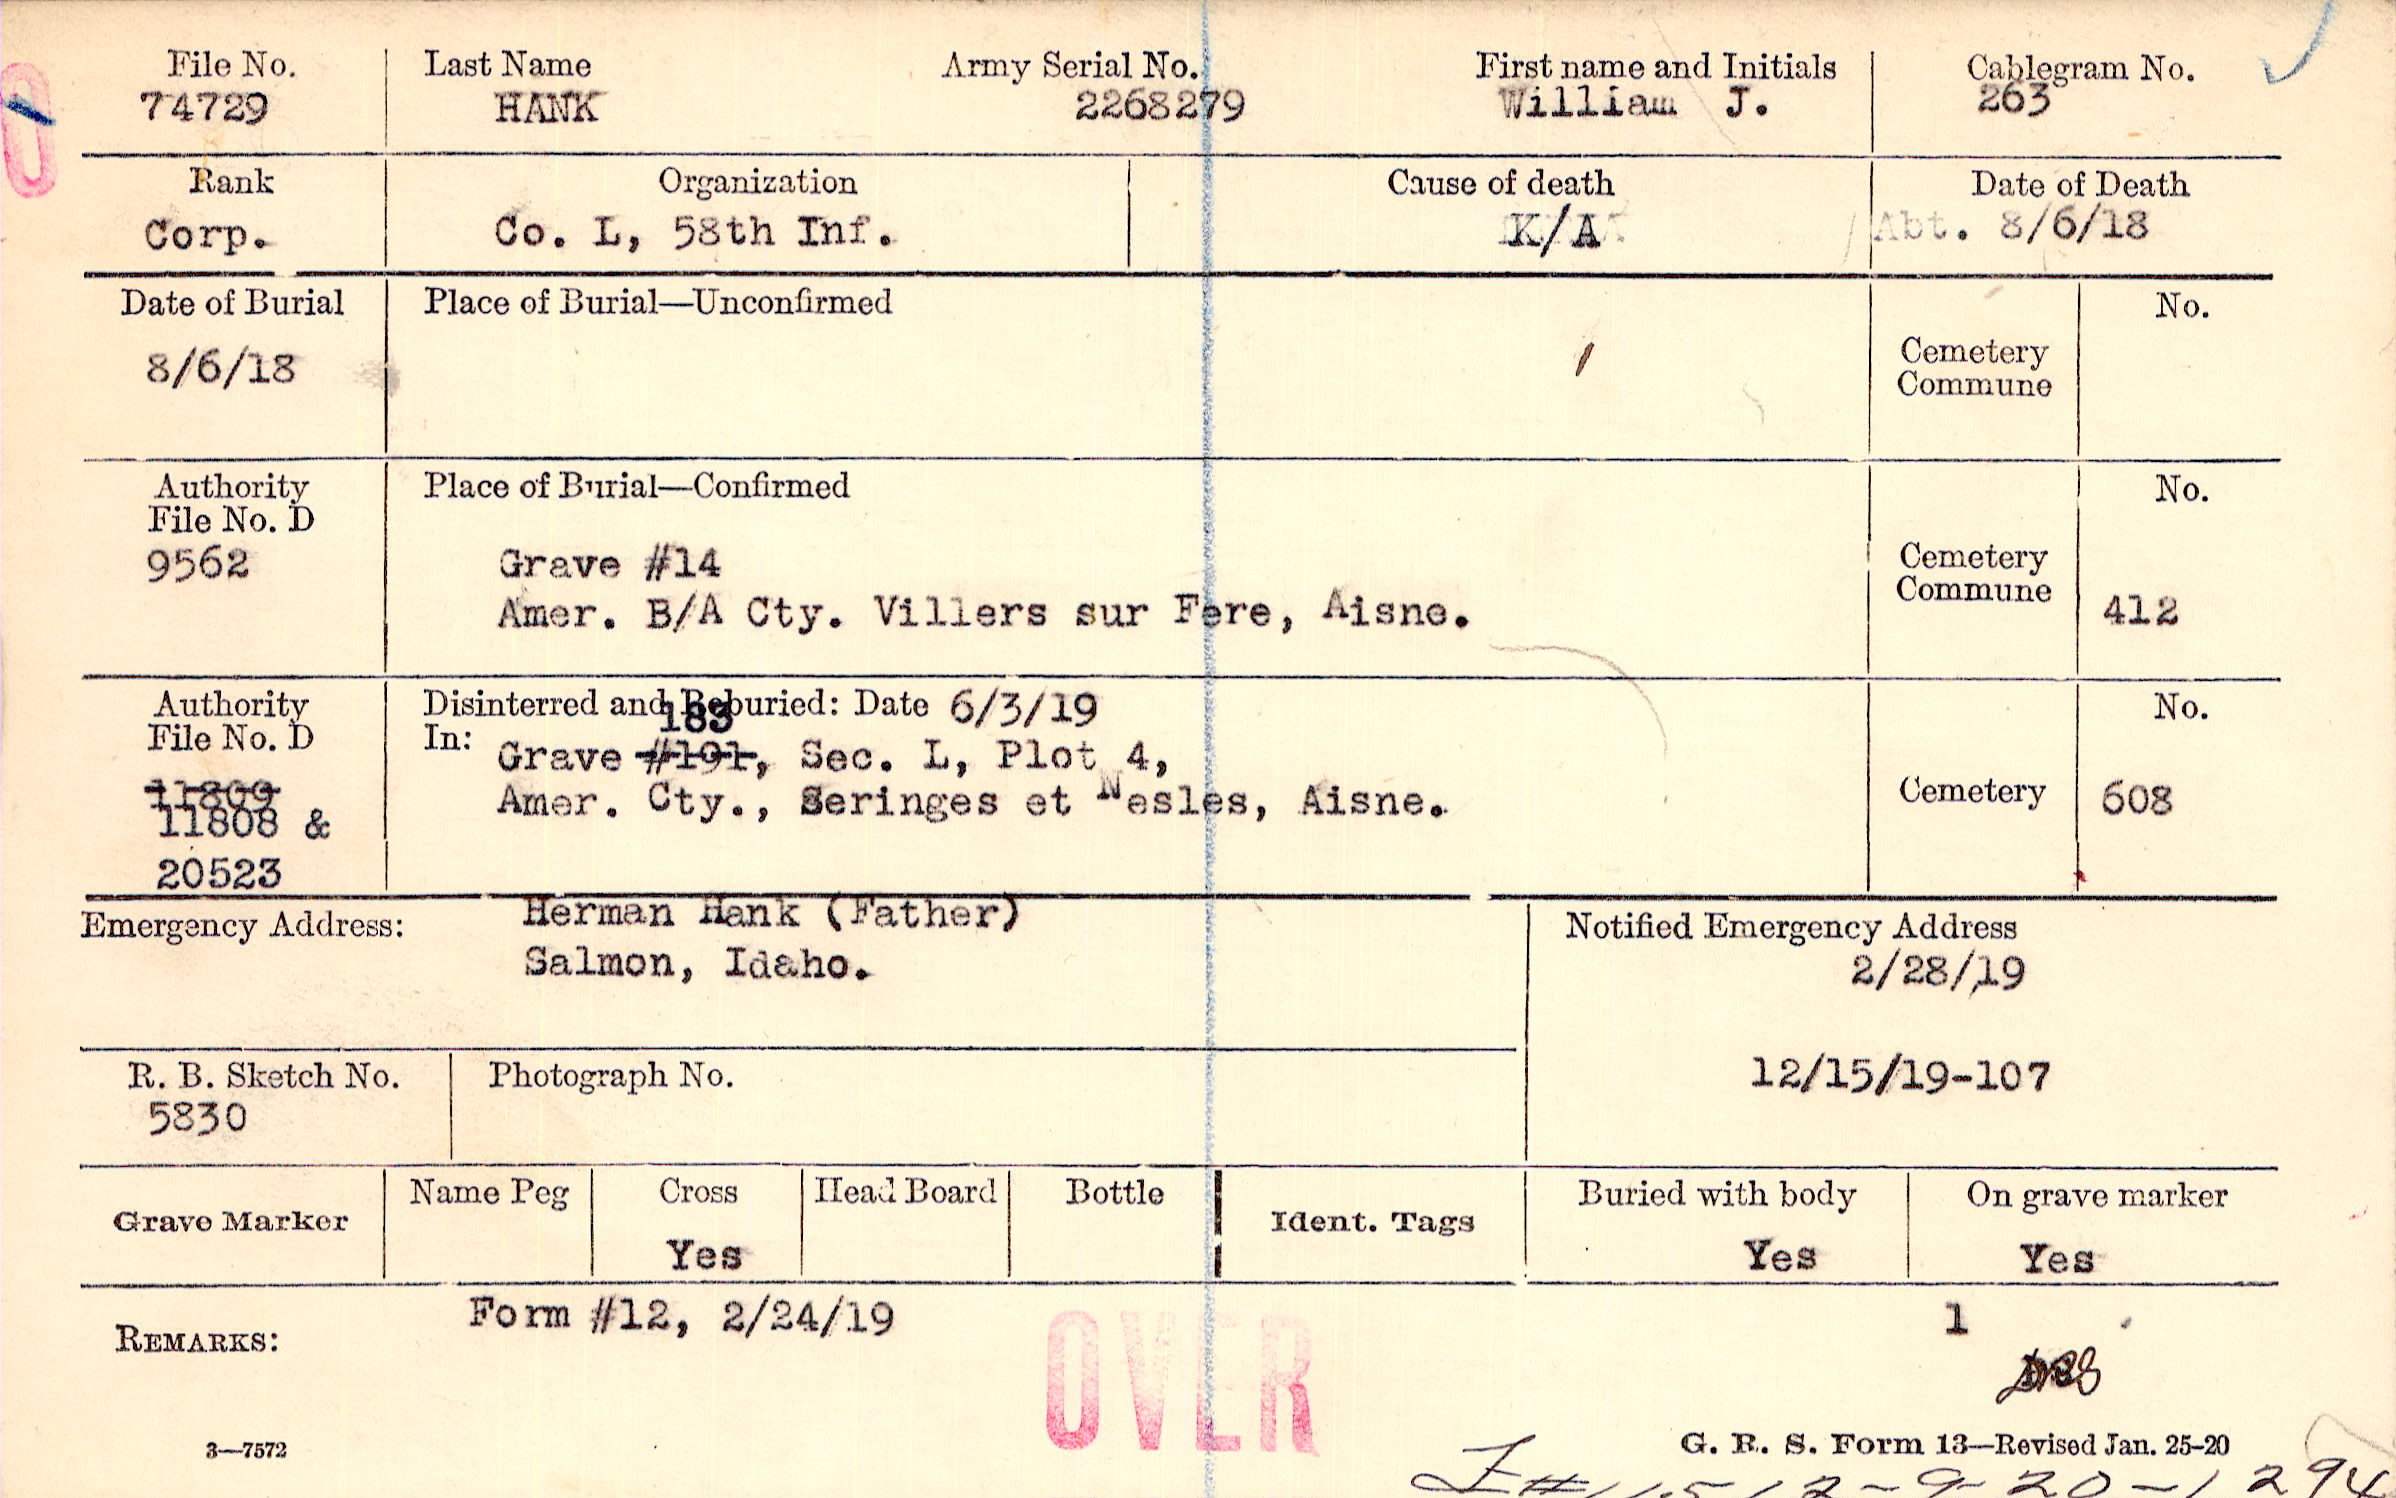 File No. Last Name Army Serial No. First name and Initials Cablegram No.
74729 HANK 2268279 William J. 263
Rank Organization Cause of death Date of Death
Corp. Co. L, 58th Inf. K/A Abt. 8/6/18
Date of Burial Place of Burial—Unconfirmed No.
8/6/18 Cemetery
Commune
Authority Place of Burial—Confirmed No.
File No. D
9562 Grave #14 Cemetery
Commune
Amer. B/A Cty. Villers sur Fere, Aisne. 412
Authority Disinterred and Reburied: Date 6/3/19 No.
183
File No. D In: Grave #191, Sec. L, Plot 4,
11809 Amer. Cty., Seringes et Nesles, Aisne. Cemetery 608
11808 &
20523
Emergency Address: Herman Hank (Father) Notified Emergency Address
Salmon, Idaho. 2/28/19
R. B. Sketch No. Photograph No. 12/15/19-107
5830
Name Peg Cross Head Board Bottle Buried with body On grave marker
Grave Marker Ident. Tags
Yes Yes Yes
Form #12, 2/24/19 1
REMARKS:
OVER
3—7572 G. R. S. Form 13—Revised Jan. 25-20